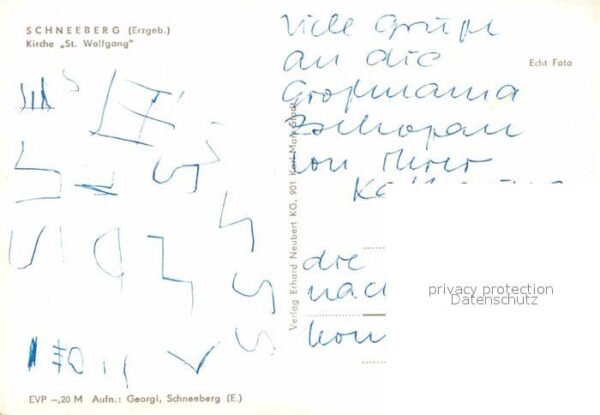 SCHNEEBERG (Erzgeb.)
Kirche „St. Wolfgang"
Viele Grüße
an die
Großmama
Zschopau
von Ihrer
Echt Foto
Verlag Erhard Neubert KG, 901 Karl-Marx-Stadt
die
nach
privacy protection
Datenschutz
EVP –,20 M Aufn.: Georgi, Schneeberg (E.)